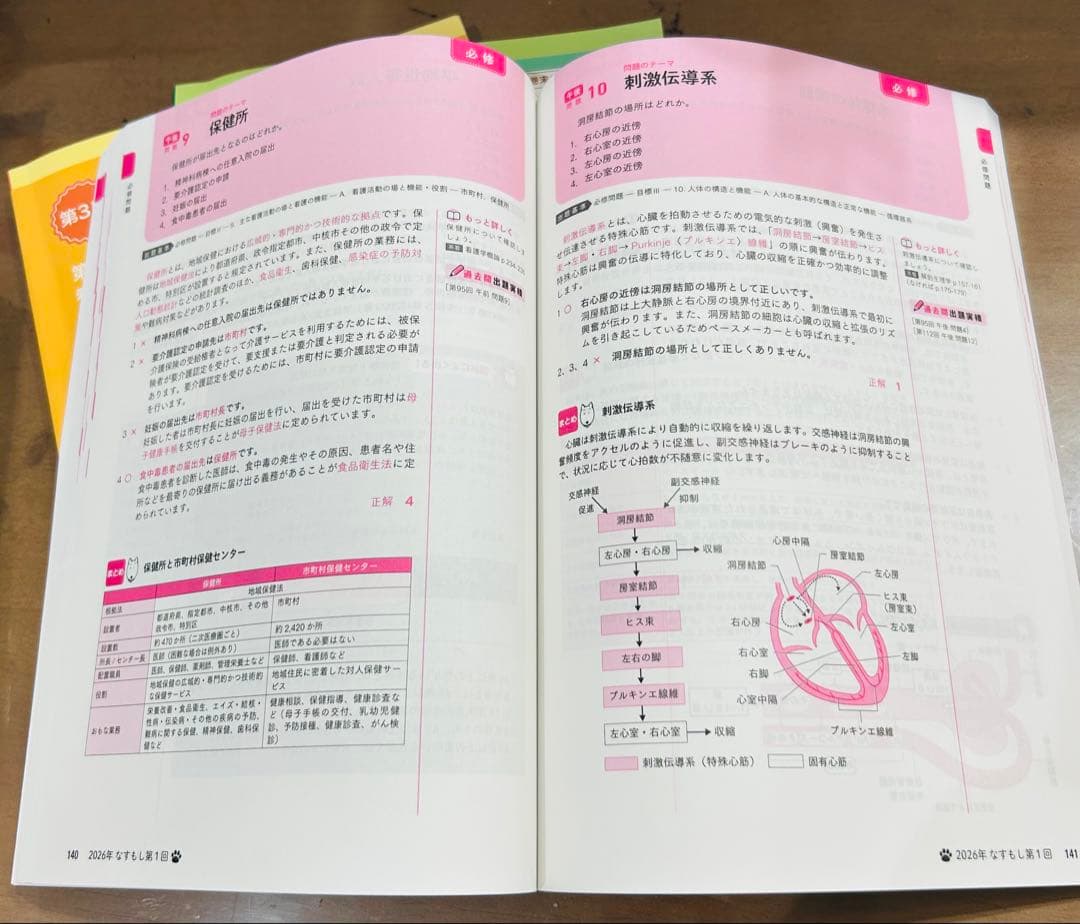 第3
必修
必修問題
午後
問題
9
問題のテーマ
保健所
保健所が届出先となるのはどれか。
1. 精神科病棟への任意入院の届出
2. 要介護認定の申請
3. 妊娠の届出
4. 食中毒患者の届出
出題基準 必修問題 ― 目標Ⅱ ― 9. 主な看護活動の場と看護の機能 ― A. 看護活動の場と機能・役割 ― 市町村、保健所
保健所とは、地域保健における広域的・専門的かつ技術的な拠点です。保
健所は地域保健法により都道府県、政令指定都市、中核市その他の政令で定
める市、特別区が設置すると規定されています。また、保健所の業務には、
人口動態統計などの統計調査のほか、食品衛生、歯科保健、感染症の予防対
策や難病対策などがあります。
1 × 精神科病棟への任意入院の届出先は保健所ではありません。
2 × 要介護認定の申請先は市町村です。
介護保険の受給権者となって介護サービスを利用するためには、被保
険者が要介護認定を受けて、要支援または要介護と判定される必要が
あります。要介護認定を受けるためには、市町村に要介護認定の申請
を行います。
3 × 妊娠の届出先は市町村長です。
妊娠した者は市町村長に妊娠の届出を行い、届出を受けた市町村は母
子健康手帳を交付することが母子保健法に定められています。
4 ○ 食中毒患者の届出先は保健所です。
食中毒患者を診断した医師は、食中毒の発生やその原因、患者名や住
所などを最寄りの保健所に届け出る義務があることが食品衛生法に定
められています。
正解 4
もっと詳しく
保健所について確認しま
しょう。
系看 看護学概論 p.234-235
過去問出題実績
[第95回 午前 問題9]
まとめ 保健所と市町村保健センター
保健所 市町村保健センター
根拠法 地域保健法
設置者 都道府県、指定都市、中核市、その他政令市、特別区 市町村
設置数 約470か所（二次医療圏ごと） 約2,420か所
所長／センター長 医師（困難な場合は例外あり） 医師である必要はない
配置職員 医師、保健師、薬剤師、管理栄養士など 保健師、看護師など
役割 地域保健の広域的・専門的かつ技術的な保健サービス 地域住民に密着した対人保健サービス
おもな業務 栄養改善・食品衛生、エイズ・結核・性病・伝染病・その他の疾病の予防、難病に関する保健、精神保健、歯科保健など 健康相談、保健指導、健康診査など（母子手帳の交付、乳幼児健診、予防接種、健康診査、がん検診）
140 2026年 なすもし第1回
必修
必修問題
午後
問題
10
問題のテーマ
刺激伝導系
洞房結節の場所はどれか。
1. 右心房の近傍
2. 右心室の近傍
3. 左心房の近傍
4. 左心室の近傍
出題基準 必修問題 ― 目標Ⅲ ― 10. 人体の構造と機能 ― A. 人体の基本的な構造と正常な機能 ― 循環器系
刺激伝導系とは、心臓を拍動させるための電気的な刺激（興奮）を発生さ
せ伝達させる特殊心筋です。刺激伝導系では、「洞房結節→房室結節→ヒス
束→左脚・右脚→Purkinje〈プルキンエ〉線維」の順に興奮が伝わります。
特殊心筋は興奮の伝導に特化しており、心臓の収縮を正確かつ効率的に調整
します。
1 ○ 右心房の近傍は洞房結節の場所として正しいです。
洞房結節は上大静脈と右心房の境界付近にあり、刺激伝導系で最初に
興奮が伝わります。また、洞房結節の細胞は心臓の収縮と拡張のリズ
ムを引き起こしているためペースメーカーとも呼ばれます。
2、3、4 × 洞房結節の場所として正しくありません。
正解 1
もっと詳しく
刺激伝導系について確認し
ましょう。
系看 解剖生理学 p.157-161
過去問出題実績
[第95回 午後 問題4]
[第112回 午後 問題12]
まとめ 刺激伝導系
心臓は刺激伝導系により自動的に収縮を繰り返します。交感神経は洞房結節の興
奮頻度をアクセルのように促進し、副交感神経はブレーキのように抑制すること
で、状況に応じて心拍数が不随意に変化します。
交感神経
促進
副交感神経
抑制
洞房結節
左心房・右心房 → 収縮
房室結節
ヒス束
左右の脚
プルキンエ線維
左心室・右心室 → 収縮
心房中隔
房室結節
洞房結節
左心房
ヒス束
(房室束)
右心房
左心室
右心室
左脚
右脚
心室中隔
プルキンエ線維
刺激伝導系（特殊心筋） 固有心筋
2026年 なすもし第1回 141